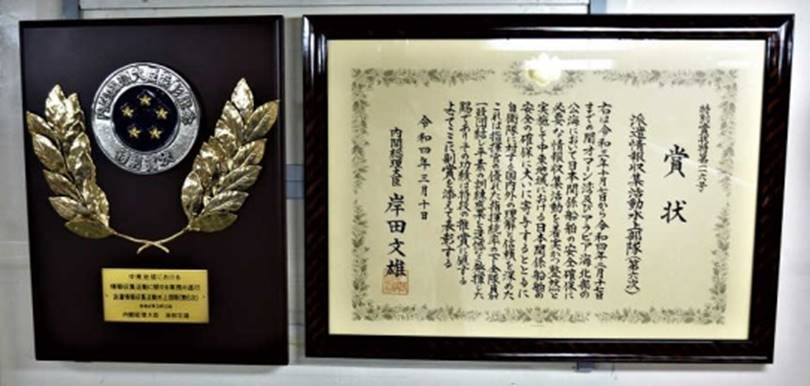 中東地域における
情報収集活動に関する業務の遂行
派遣情報収集活動水上部隊(第6次)
内閣総理大臣 岸田文雄
特別賞状
賞状
派遣情報収集活動水上部隊(第六次)
右は令和三年十月七日から令和四年二月十七日
までの間オマーン湾及びアラビア海北部の
公海において日本関係船舶の安全確保に
必要な情報収集活動を着実かつ整然と
実施し中東地域における日本関係船舶の
安全の確保に大いに寄与するとともに
自衛隊に対する国内外の理解と信頼を深めた
これは指揮官の優れた指揮統率の下全隊員が
一致団結し平素の訓練成果を遺憾なく発揮した
賜でありその功績は特段の推賞に値する
よってここに副賞を添えて表彰する
令和四年三月十日
内閣総理大臣 岸田文雄